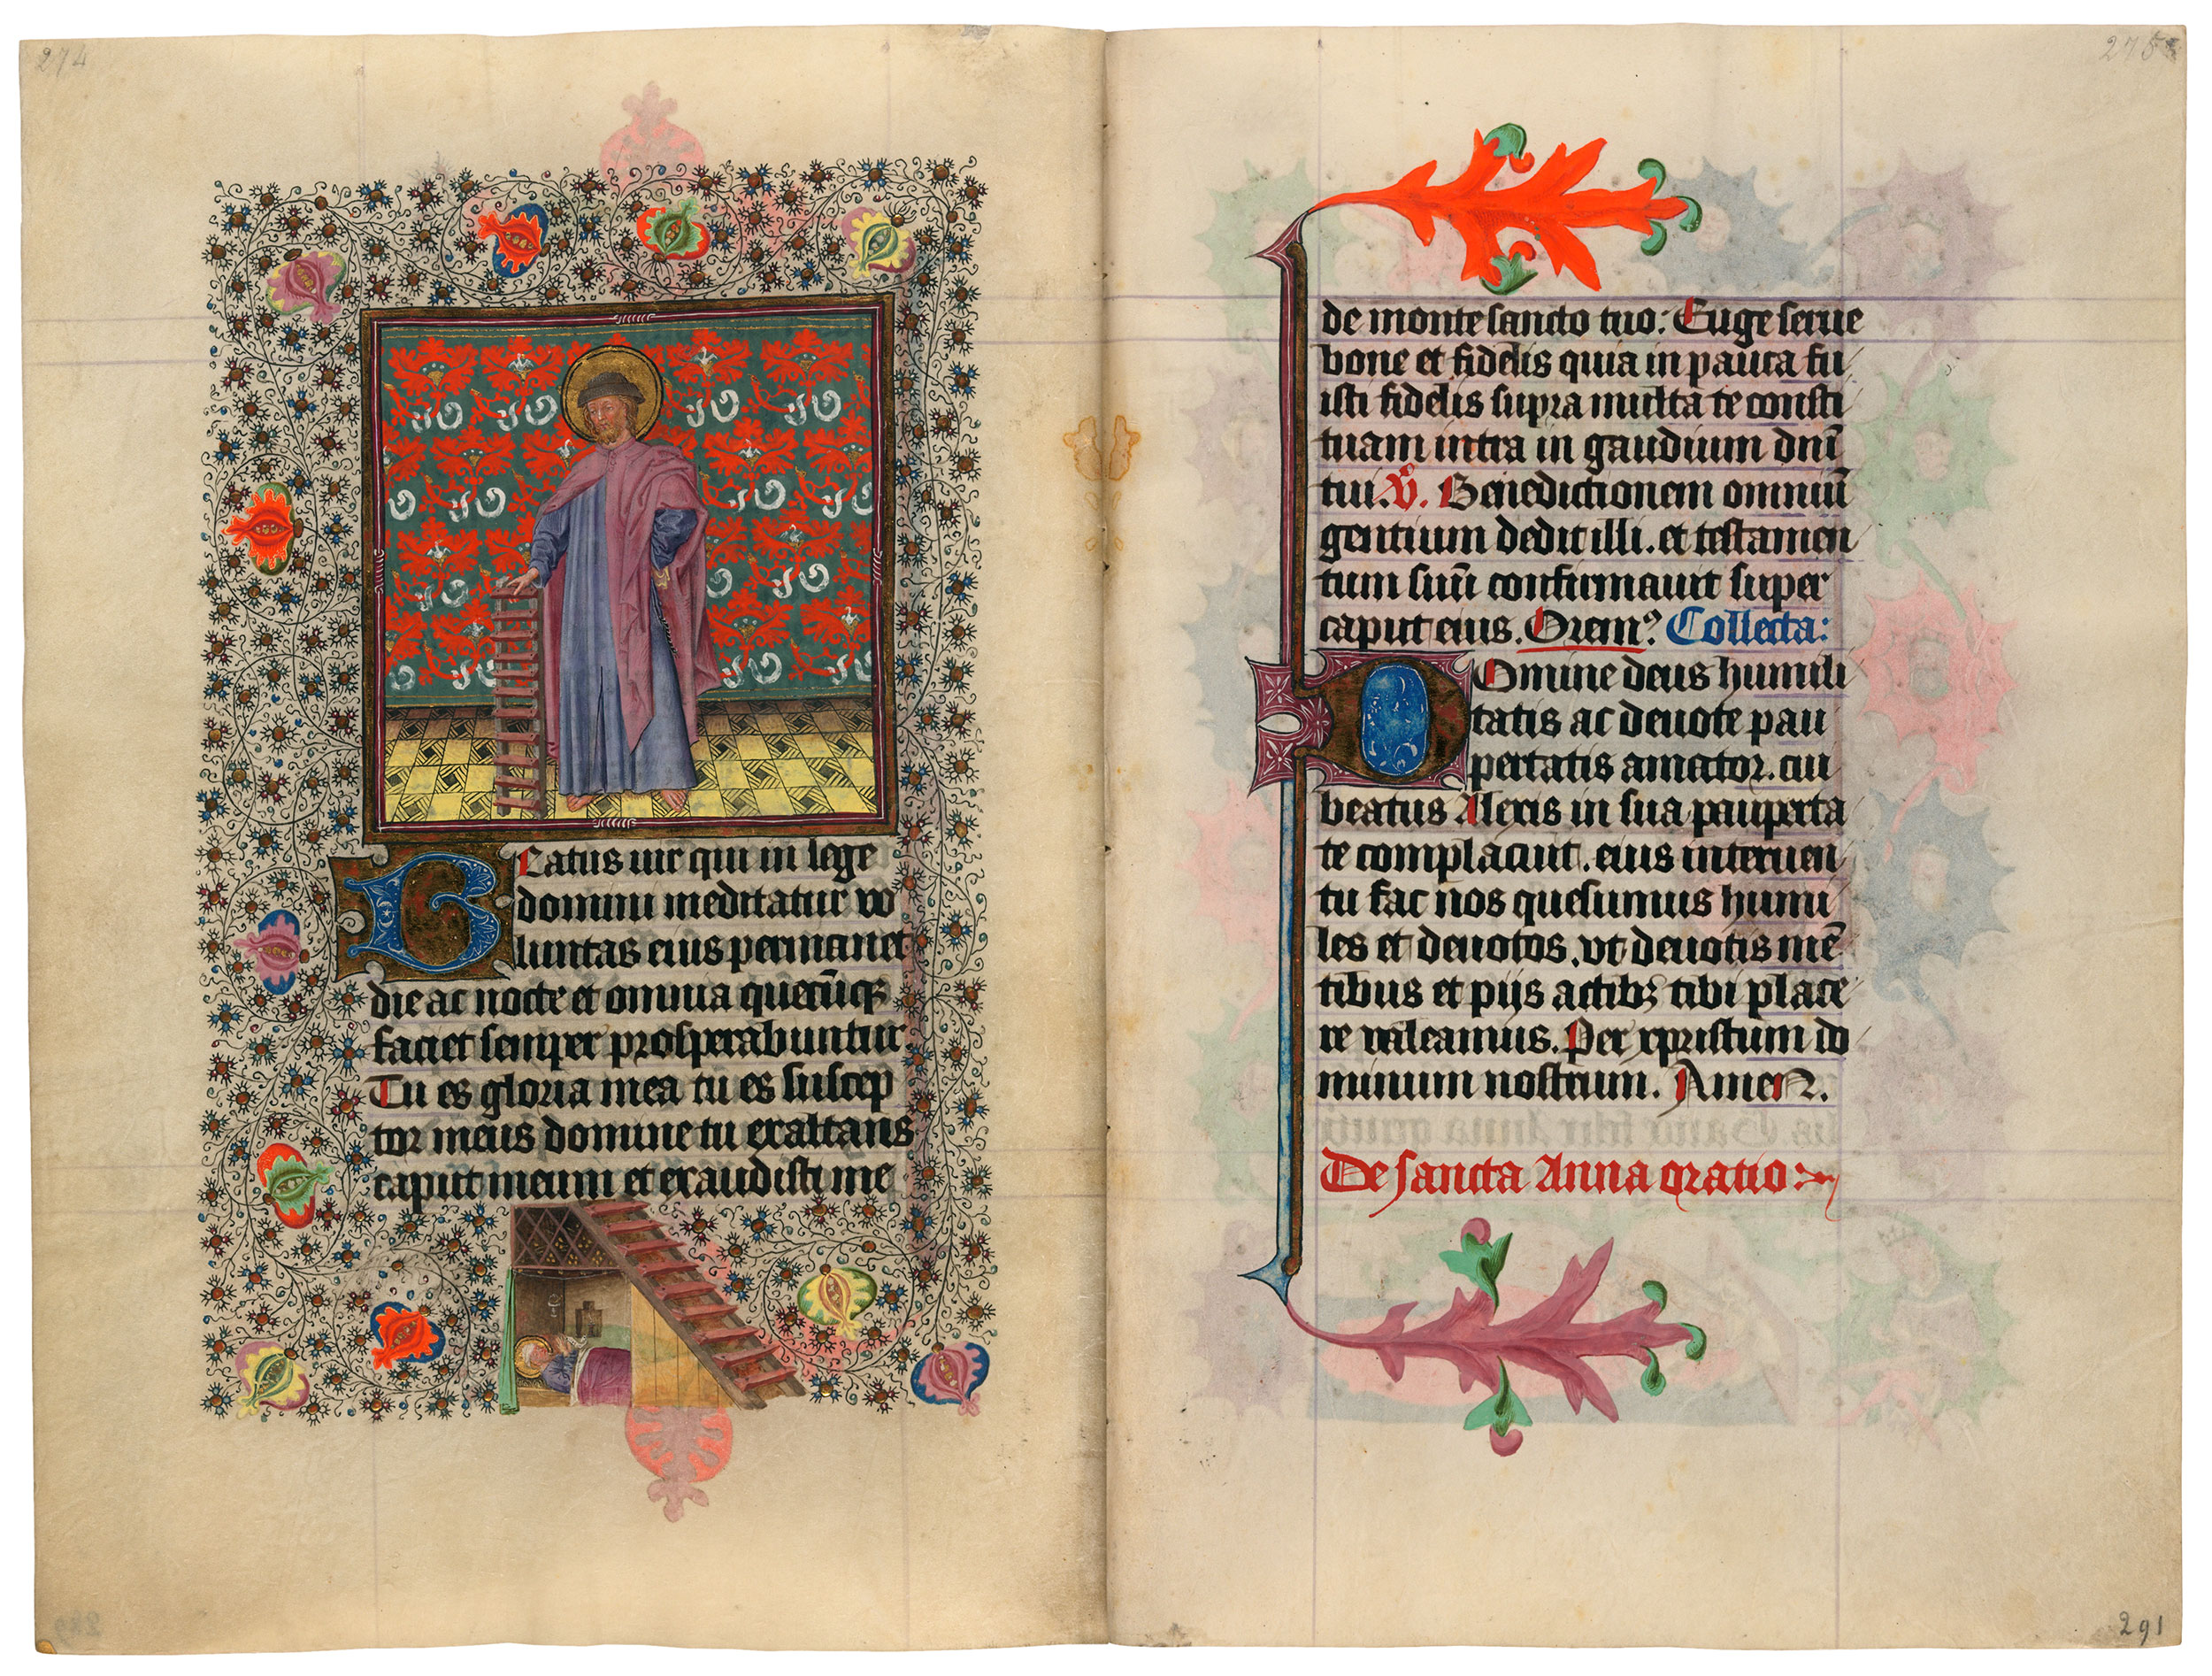 274
Beatus uir qui in lege
domini meditatur vo
luntas eius permanet
die ac nocte et omnia quecūqꝫ
faciet semper prosperabuntur.
Tu es gloria mea tu es suscep
tor meus domine tu exaltans
caput meum et exaudisti me
275
de monte sancto tuo: Euge serue
bone et fidelis quia in pauca fu
isti fidelis supra multa te consti
tuam intra in gaudium dnī
tui. V̊. Benedictionem omniū
gentium dedit illi. et testamen
tum suū confirmauit super
caput eius. Oremꝰ Collecta:
Domine deus humili
tatis ac deuote pau
pertatis amator. cui
beatus Alexis in sua pauperta
te complacuit. eius interuen
tu fac nos quesumus humi
les et deuotos. vt deuotis mē
tibus et pijs actibꝫ tibi place
re valeamus. Per xpristum do
minum nostrum. Amen.
De sancta Anna oratio:
291